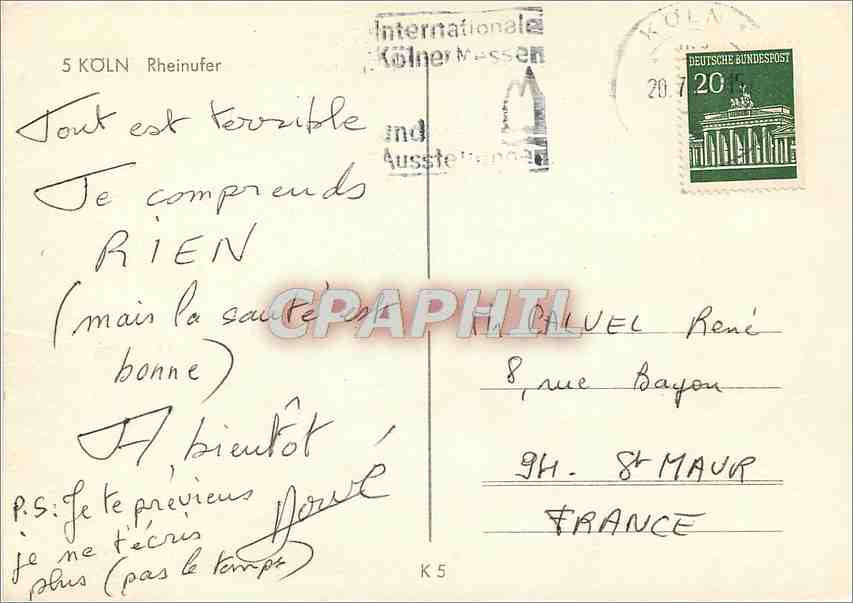 5 KÖLN Rheinufer
Tout est terrible
Je comprends
RIEN
(mais la santé est
bonne)
A bientôt
P.S: Je te préviens
je ne t'écris
plus (pas le temps)
Internationale
Kölner Messen
und
Ausstellungen
KÖLN
20.7
15
DEUTSCHE BUNDESPOST
20
CPAPHIL
M. CALVEL René
8, rue Bayon
94. St MAUR
FRANCE
K 5